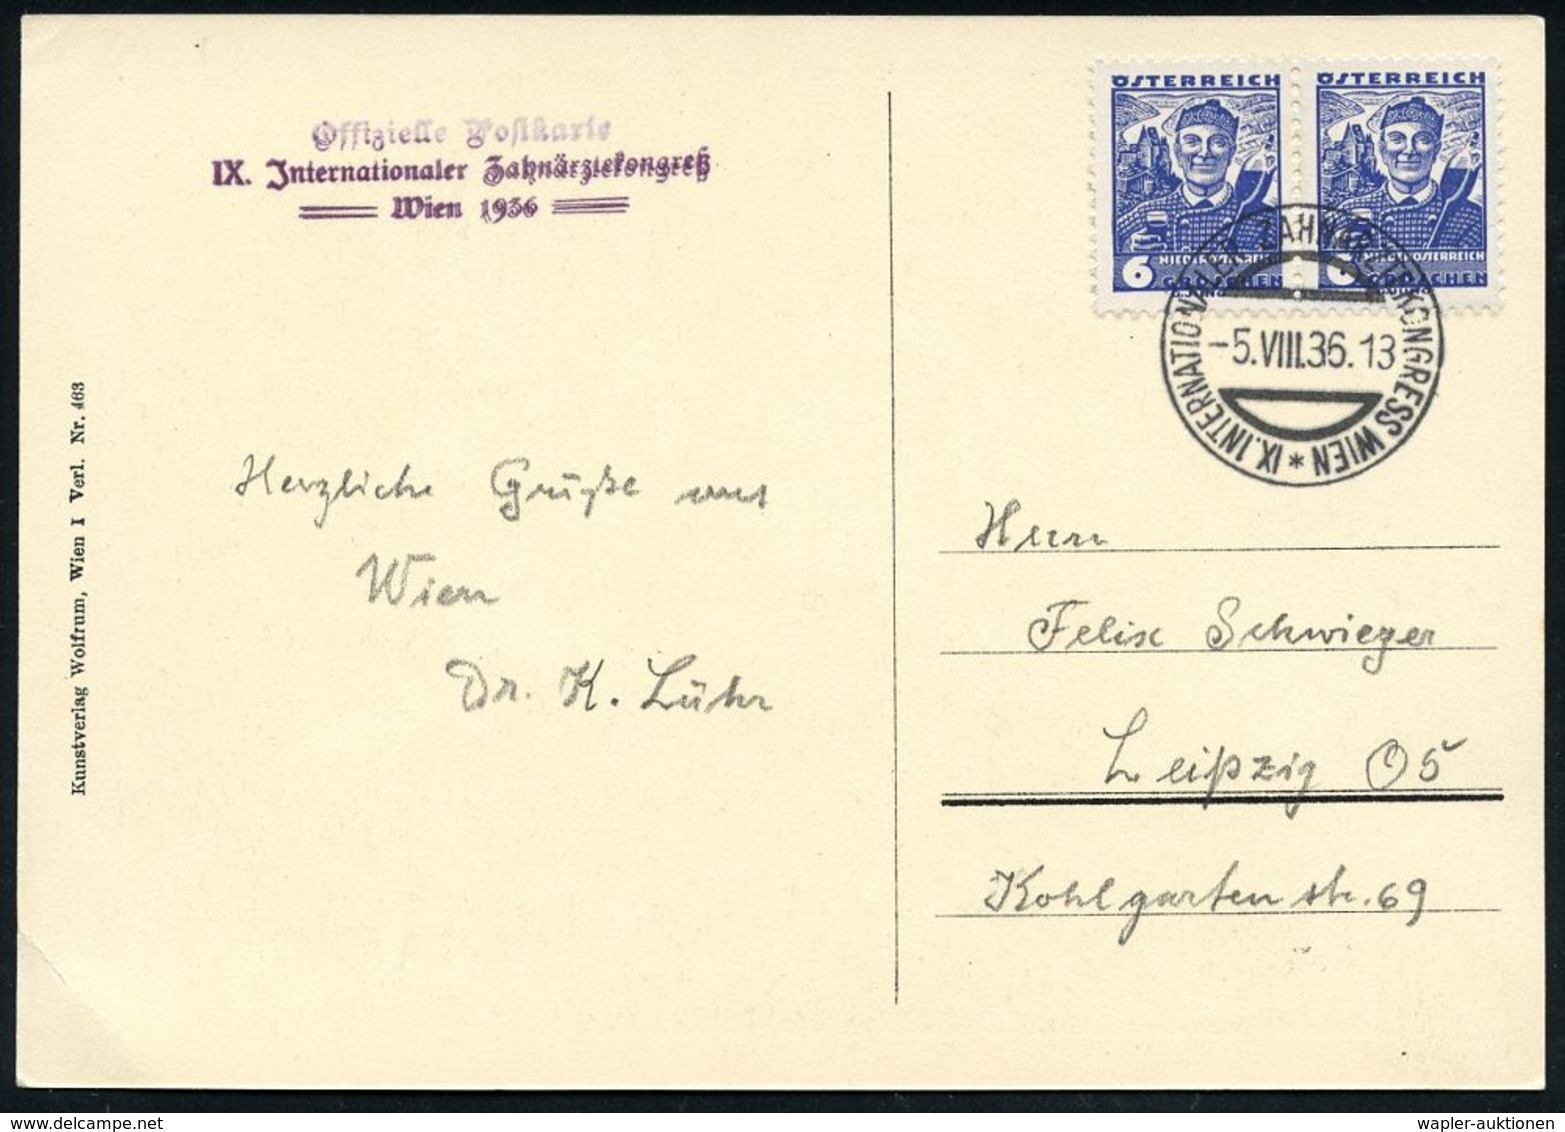 Offizielle Postkarte
IX. Internationaler Zahnärztekongreß
Wien 1936
ÖSTERREICH
NIEDERÖSTERREICH
6 GROSCHEN
ÖSTERREICH
NIEDERÖSTERREICH
6 GROSCHEN
IX. INTERNATIONALER ZAHNÄRZTEKONGRESS WIEN *
-5.VIII.36.13
Kunstverlag Wolfrum, Wien I Verl. Nr. 463
Herzliche Grüße aus
Wien
Dr. K. Lühr
Herrn
Felix Schwieger
Leipzig O5
Kohlgartenstr. 69
wapler-auktionen